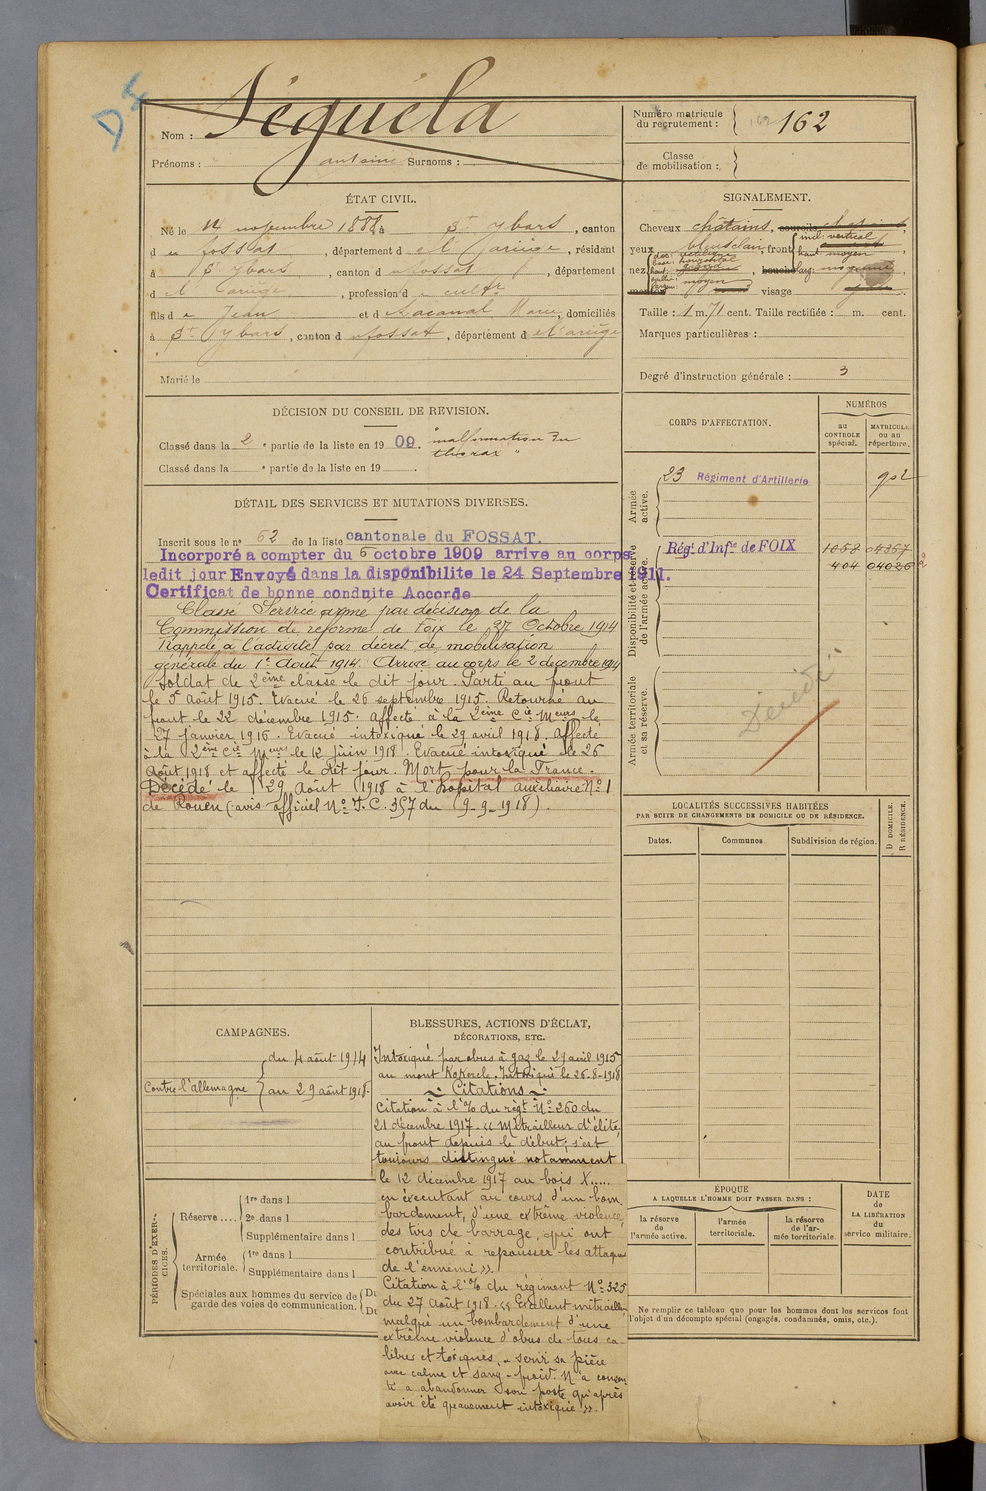 DE
Nom : Séguéla
Prénoms : antoine Surnoms :
Numéro matricule
du recrutement : 162 162
Classe
de mobilisation :
ÉTAT CIVIL.
Né le 14 novembre 1888 à St ybars, canton
d u fossat, département d e l'ariège, résidant
à St ybars, canton d u fossat, département
d e l'ariège, profession d e cultr
fils d e Jean et d e Marie, domiciliés
à St Ybars, canton d u fossat, département d e l'ariège
Marié le
SIGNALEMENT.
Cheveux châtains, sourcils chatains,
yeux bleus clair, front incl: vertical
haut: moyen
nez dos: rectiligne
base: horizontal
haut:
saillie: moyen
largeur:
bouche larg: moyenne
menton visage
Taille : 1 m. 71 cent. Taille rectifiée : m. cent.
Marques particulières :
Degré d'instruction générale : 3
DÉCISION DU CONSEIL DE REVISION.
Classé dans la 2e partie de la liste en 1909. "malformation du
thorax"
Classé dans la e partie de la liste en 19 .
CORPS D'AFFECTATION.
NUMÉROS
au
CONTROLE
spécial.
MATRICULE
ou au
répertoire.
Armée
active.
23 Régiment d'Artillerie 902
Disponibilité et réserve
de l'armée active.
Régt d'Infie de FOIX 1058 04357
404 04026
Armée territoriale
et sa réserve.
Décédé
DÉTAIL DES SERVICES ET MUTATIONS DIVERSES.
Inscrit sous le no 62 de la liste cantonale du FOSSAT.
Incorporé a compter du 6 octobre 1909 arrive au corps
ledit jour Envoyé dans la disponibilite le 24 Septembre 1911.
Certificat de bonne conduite Accorde
Classé Service armé par décision de la
Commission de réforme de Foix le 27 Octobre 1914
Rappelé à l'activité par décret de mobilisation
générale du 1er Août 1914. Arrivé au corps le 2 decembre 1914
Soldat de 2ème classe le dit jour. Parti au front
le 5 août 1915. Evacué le 26 septembre 1915. Retourné au
front le 22 décembre 1915. Affecté à la 2ème Cie Meurs le
27 janvier 1916. Evacué intoxiqué le 29 avril 1918. Affecté
à la 2ème Cie Meurs le 12 juin 1918. Evacué intoxiqué le 26
Août 1918 et affecté le dit jour. Mort pour la France.
Décédé le 29 Août 1918 à l'hôpital auxiliaire No 1
de Rouen (avis officiel No F.C. 357 du 9-9-1918).
LOCALITÉS SUCCESSIVES HABITÉES
PAR SUITE DE CHANGEMENTS DE DOMICILE OU DE RÉSIDENCE.
Dates.
Communes
Subdivision de région.
D DOMICILE.
R RÉSIDENCE.
CAMPAGNES.
Contre l'allemagne du 4 août 1914
au 29 août 1918.
BLESSURES, ACTIONS D'ÉCLAT,
DÉCORATIONS, ETC.
Intoxiqué par obus à gaz le 29 avril 1915
au mont Kokerele. Intoxiqué le 26-8-1918
~ Citations ~
Citation à l'% du régt No 260 du
21 décembre 1917 - « Mitrailleur d'élite,
au front depuis le début; s'est
toujours distingué notamment
le 12 décembre 1917 au bois X.....
en éxecutant au cours d'un bom
bardement, d'une extrême violence,
des tirs de barrage, qui ont
contribué à repousser les attaques
de l'ennemi ».
Citation à l'% du régiment No 325
du 27 Août 1918. « Exellent mitrailleur
malgré un bombardement d'une
extrême violence d'obus de tous ca-
libres et toxiques, a servi sa pièce
avec calme et sang-froid. N'a consen
ti a abandonner son poste qu'après
avoir été gravement intoxiqué ».
PÉRIODES D'EXER-
CICES.
Réserve ....
1re dans l
2e dans l
Supplémentaire dans l
Armée
territoriale.
1re dans l
Supplémentaire dans l
Spéciales aux hommes du service de
garde des voies de communication.
Du
Du
ÉPOQUE
A LAQUELLE L'HOMME DOIT PASSER DANS :
la réserve
de
l'armée active.
l'armée
territoriale.
la réserve
de l'ar-
mée territoriale.
DATE
de
LA LIBÉRATION
du
service militaire.
Ne remplir ce tableau que pour les hommes dont les services font
l'objet d'un décompte spécial (engagés, condamnés, omis, etc.).